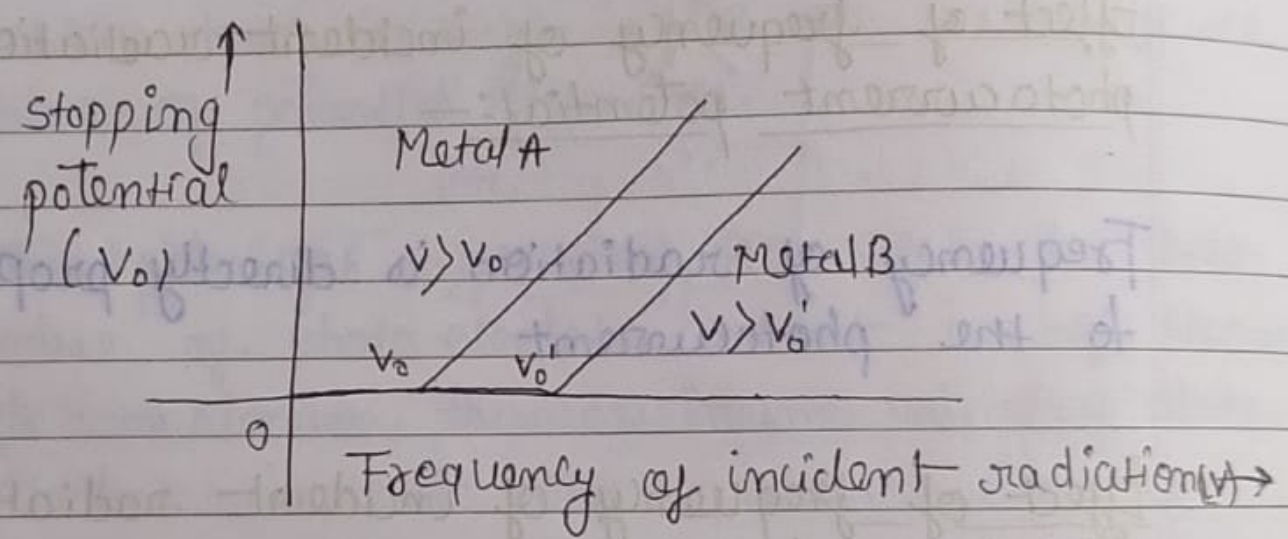 Stopping
potential
(V₀)
Metal A
ν>ν₀
Metal B
ν>ν₀'
ν₀
ν₀'
0
Frequency of incident radiation(ν)→